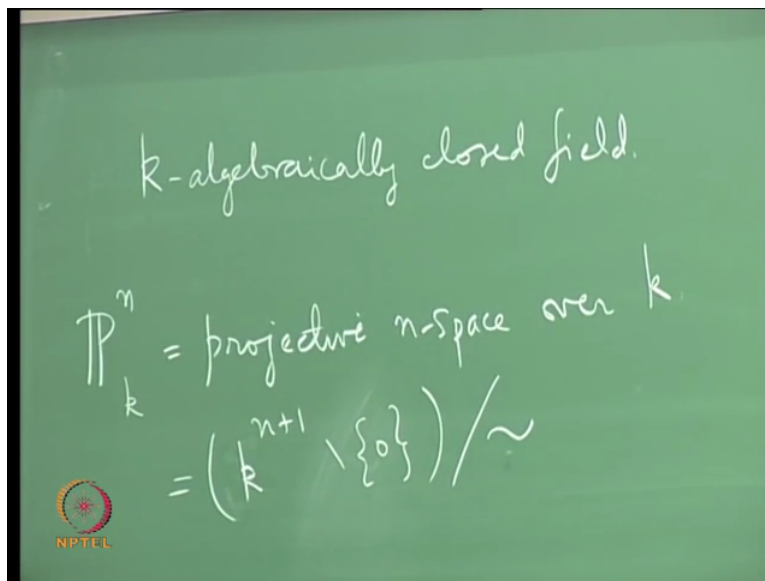 k-algebraically closed field.
ℙⁿₖ = projective n-space over k.
= (kⁿ⁺¹ \ {0}) / ~
NPTEL